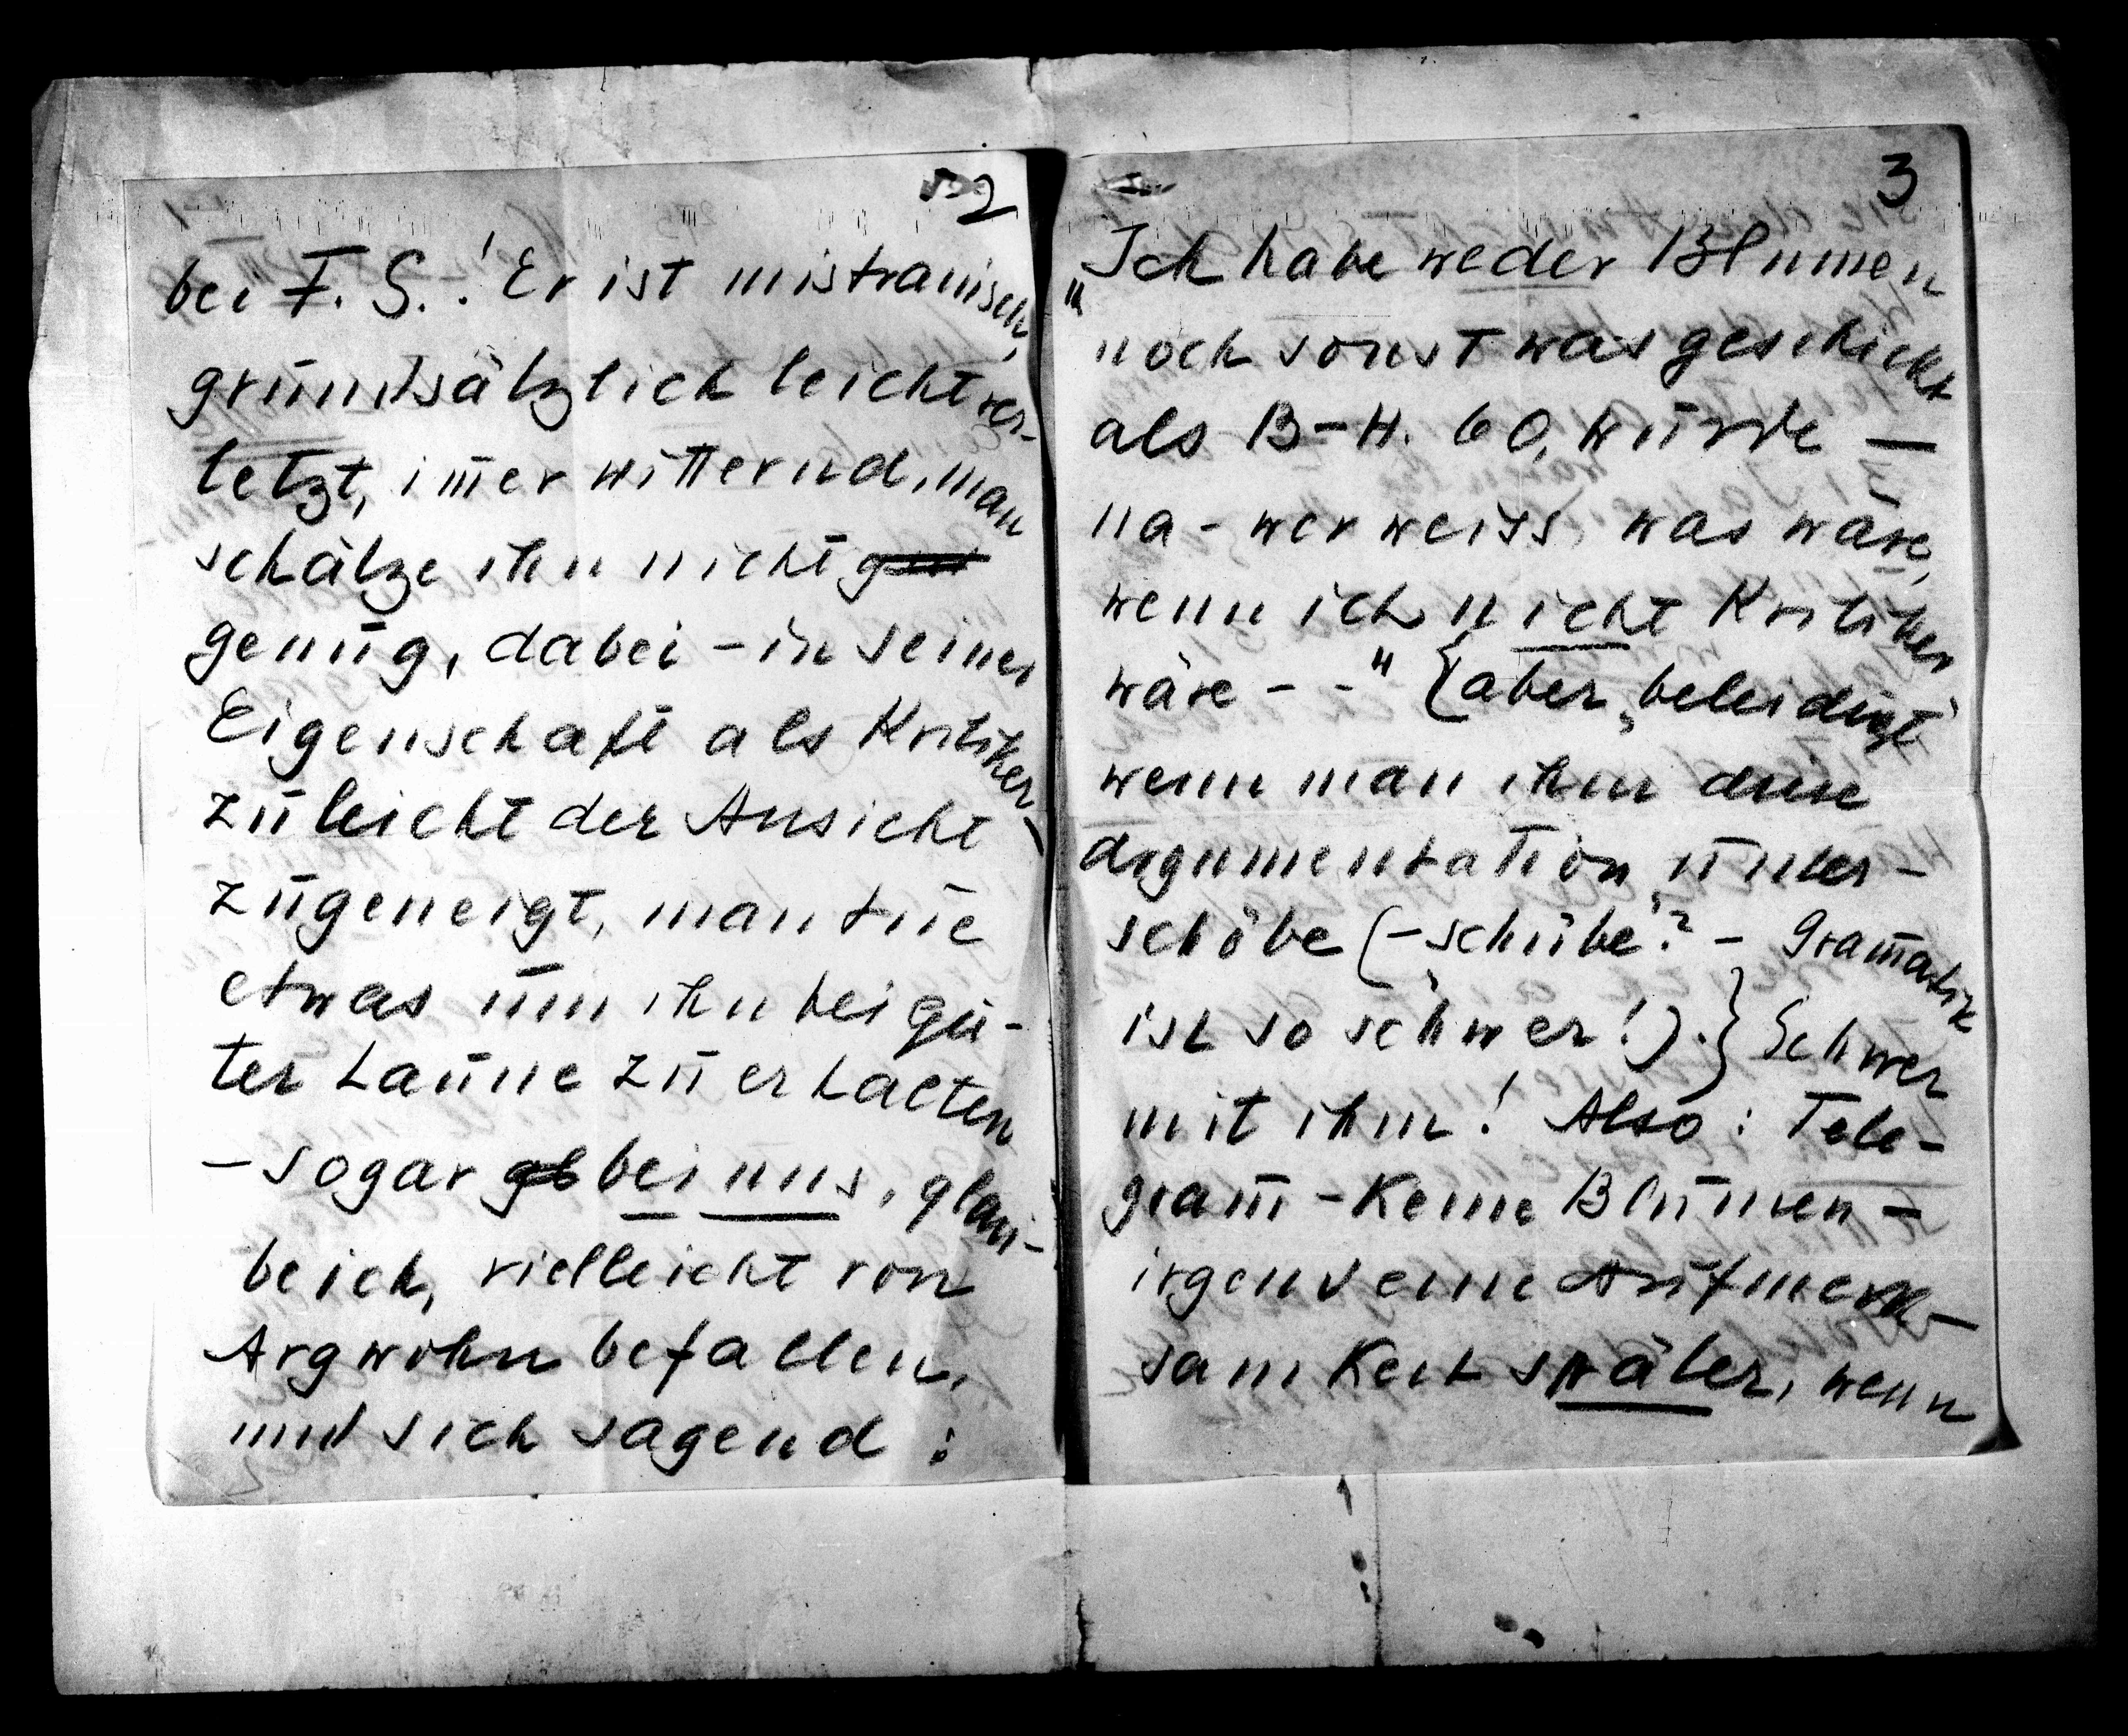 2
bei F. S.! Er ist mistrauisch,
grundsätzlich leicht ver-
letzt, im̅er witternd, man
schätze ihn nicht
genug, dabei – in seiner
Eigenschaft als Kritiker –
zu leicht der Ansicht
zugeneigt, man tue
etwas um ihn bei gu-
ter Laune zu erhalten
– sogar bei uns, glau-
be ich, vielleicht von
Argwohn befallen,
und sich sagend :
3
„Ich habe weder Blumen
noch sonst was geschickt
als B–H. 60, wurde —
na – wer weiss was wäre,
wenn ich nicht Kritiker
wäre – –" {aber „beleidigt"
wenn man ihm diese
Argumentation unter-
schöbe (– „schübe"? – Gram̅atik
ist so schwer!).} Schwer
mit ihm! Also: Tele-
gram̅ – Keine Blumen –
irgend eine Aufmerk-
samkeit später, wenn